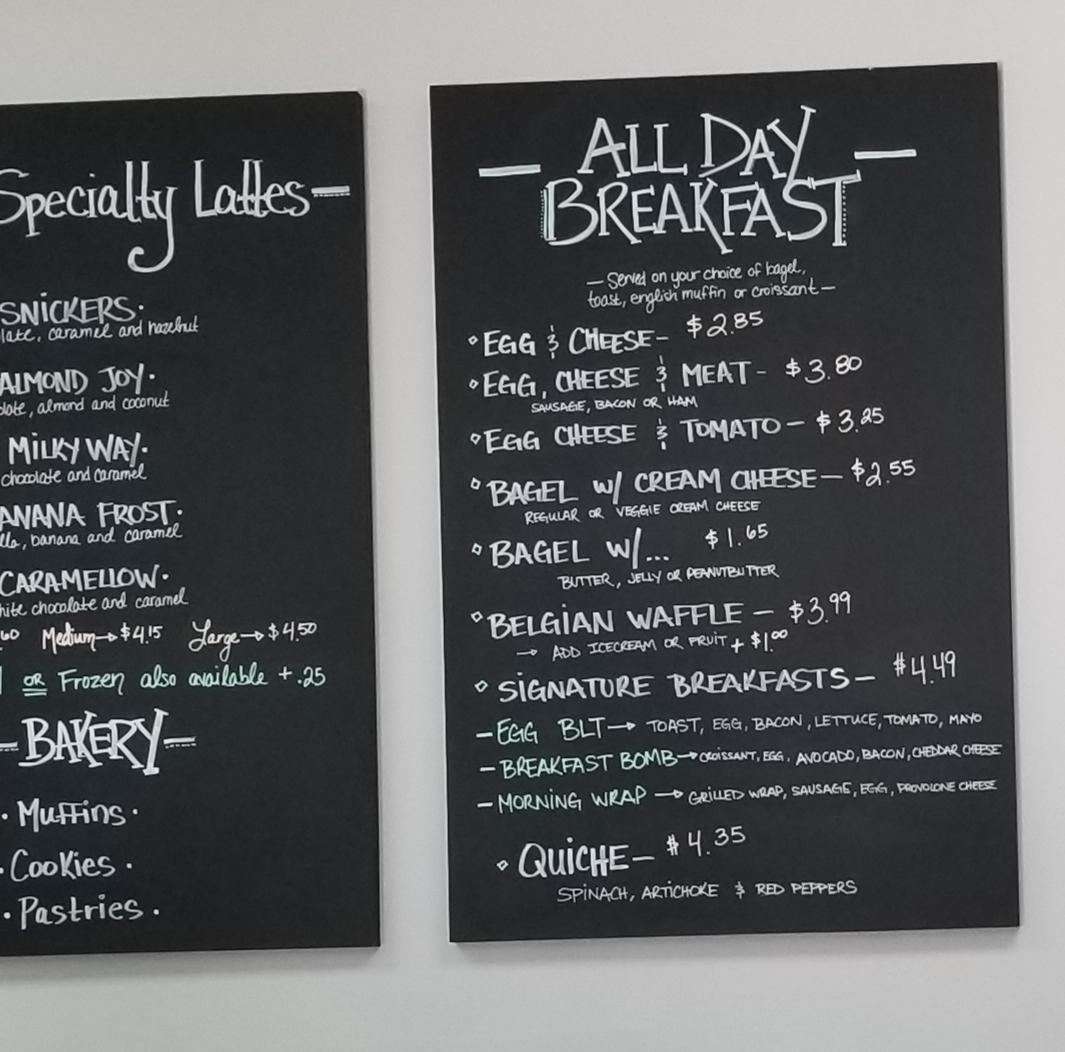 Specialty Lattes
SNICKERS.
late, caramel and hazelnut
ALMOND JOY.
olate, almond and coconut
MILKY WAY.
chocolate and caramel
ANANA FROST.
lla, banana and caramel
CARAMELLOW.
hite chocolate and caramel
60 Medium→$4.15 Large→$4.50
OR Frozen also available +.25
-BAKERY-
· Muffins ·
· Cookies ·
· Pastries ·
— ALL DAY —
BREAKFAST
— Served on your choice of bagel,
toast, english muffin or croissant —
EGG & CHEESE- $2.85
EGG, CHEESE & MEAT- $3.80
SAUSAGE, BACON OR HAM
EGG CHEESE & TOMATO- $3.25
BAGEL W/ CREAM CHEESE- $2.55
REGULAR OR VEGGIE CREAM CHEESE
BAGEL W/... $1.65
BUTTER, JELLY OR PEANUTBUTTER
BELGIAN WAFFLE - $3.99
→ ADD ICECREAM OR FRUIT + $1.00
SIGNATURE BREAKFASTS- $4.49
-EGG BLT→ TOAST, EGG, BACON, LETTUCE, TOMATO, MAYO
-BREAKFAST BOMB→CROISSANT, EGG, AVOCADO, BACON, CHEDDAR CHEESE
-MORNING WRAP → GRILLED WRAP, SAUSAGE, EGG, PROVOLONE CHEESE
QUICHE- $4.35
SPINACH, ARTICHOKE & RED PEPPERS